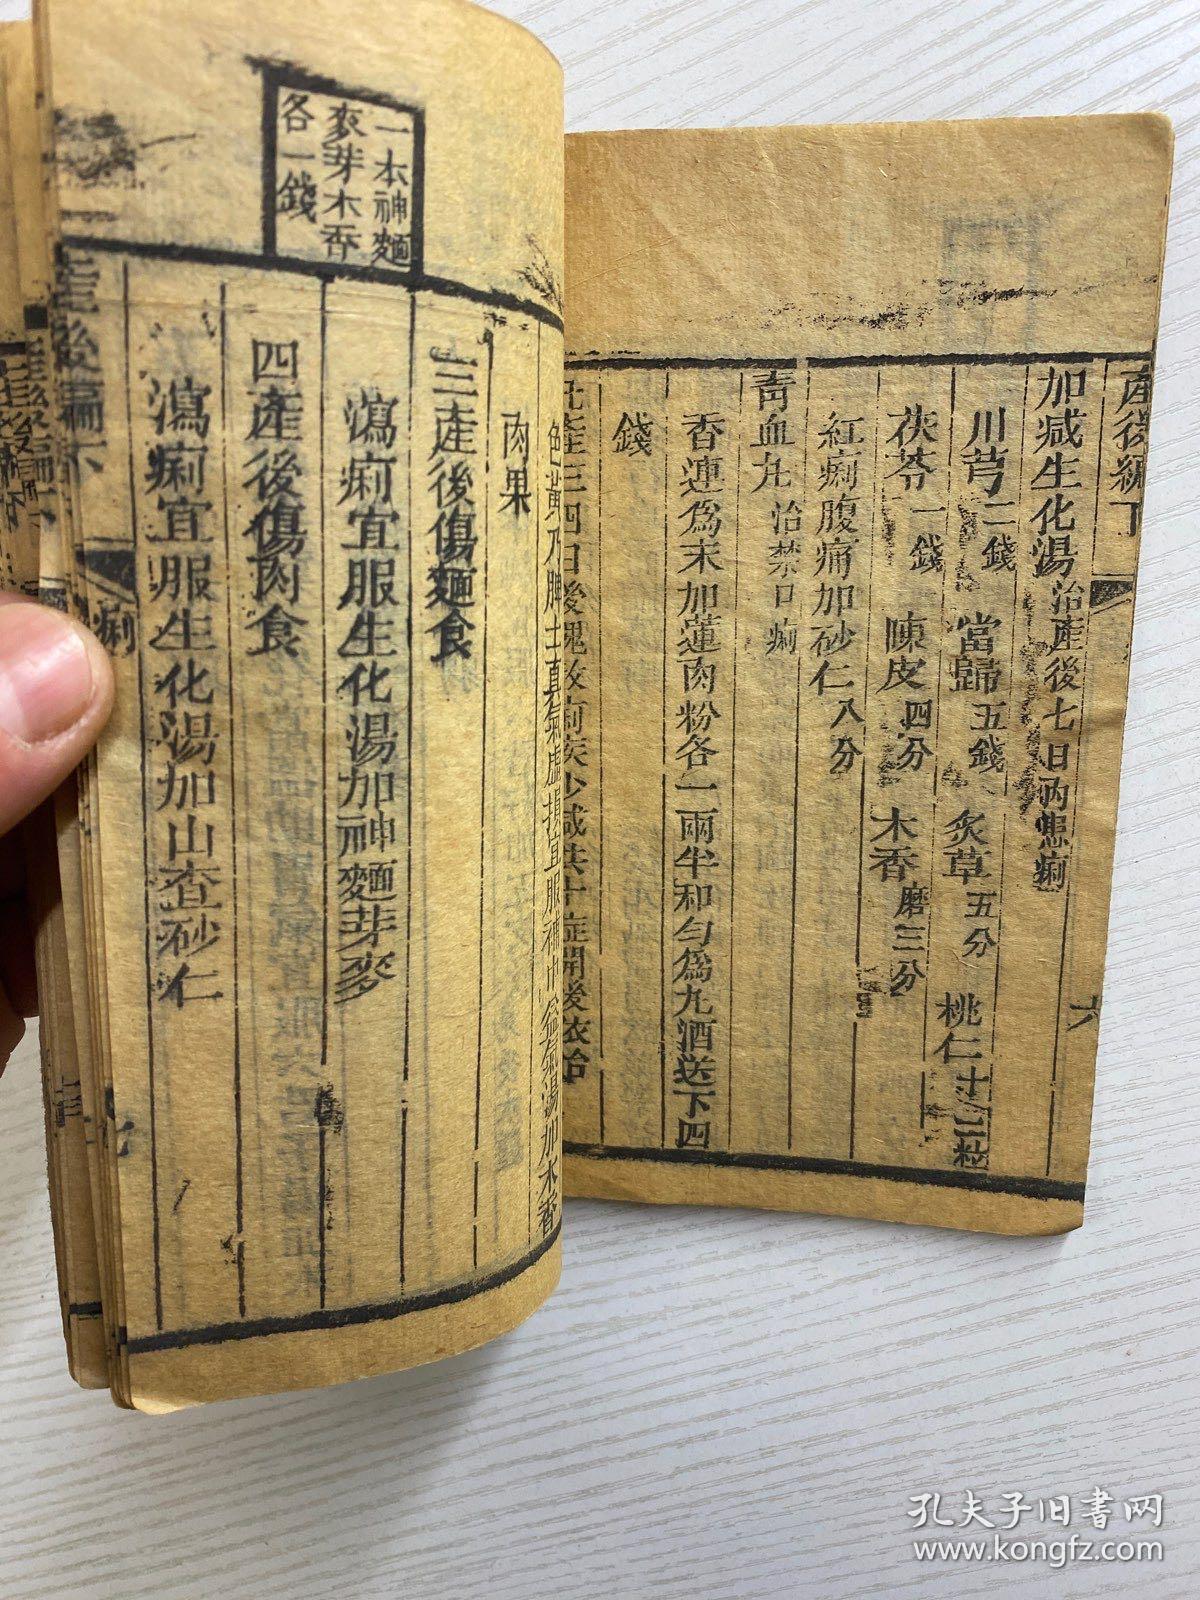 產後編下
六
加减生化湯治產後七日內患痢
川芎二錢 當歸五錢 炙草五分 桃仁十二粒
茯苓一錢 陳皮四分 木香磨三分
紅痢腹痛加砂仁八分
青血丸治禁口痢
香連為末加蓮肉粉各一兩半和勻為丸酒送下四
錢
凡產三四日後塊散痢疾少减共十症開後依治
一本神麯
麥芽木香
各一錢
色黃乃脾土真氣虛損宜服補中益氣湯加木香
肉果
三產後傷麵食
瀉痢宜服生化湯加神麯芽麥
四產後傷肉食
瀉痢宜服生化湯加山查砂仁
產後編下
痢
七
孔夫子旧书网
www.kongfz.com